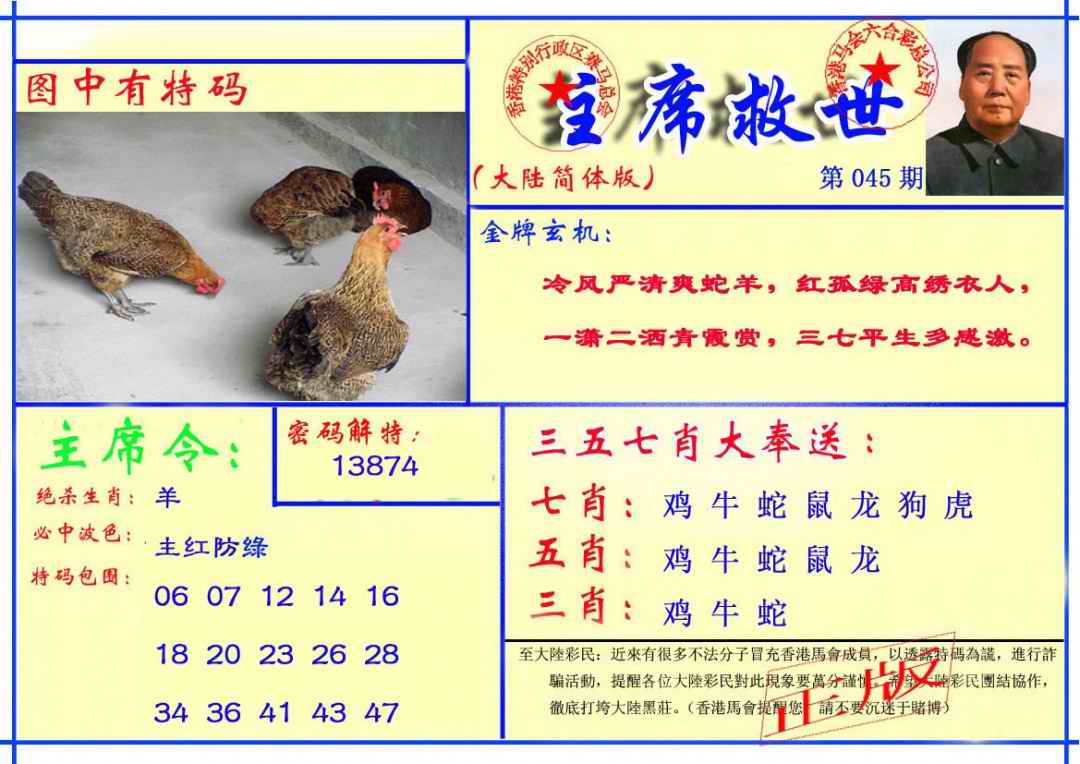 图中有特码
香港特别行政区赛马总会
香港马会六合彩总公司
主席救世
(大陆简体版)
第 045 期
金牌玄机:
冷风严清爽蛇羊，红孤绿高绣衣人，
一潇二洒青霞赏，三七平生多感激。
主席令:
密码解特:
13874
绝杀生肖: 羊
必中波色: 主红防綠
特码包围:
06 07 12 14 16
18 20 23 26 28
34 36 41 43 47
三五七肖大奉送:
七肖: 鸡 牛 蛇 鼠 龙 狗 虎
五肖: 鸡 牛 蛇 鼠 龙
三肖: 鸡 牛 蛇
至大陸彩民: 近來有很多不法分子冒充香港馬會成員，以透露特碼為謊，進行詐
騙活動，提醒各位大陸彩民對此現象要萬分謹慎。希望大陸彩民團結協作，
徹底打垮大陸黑莊。(香港馬會提醒您 請不要沉迷于賭博)
正版